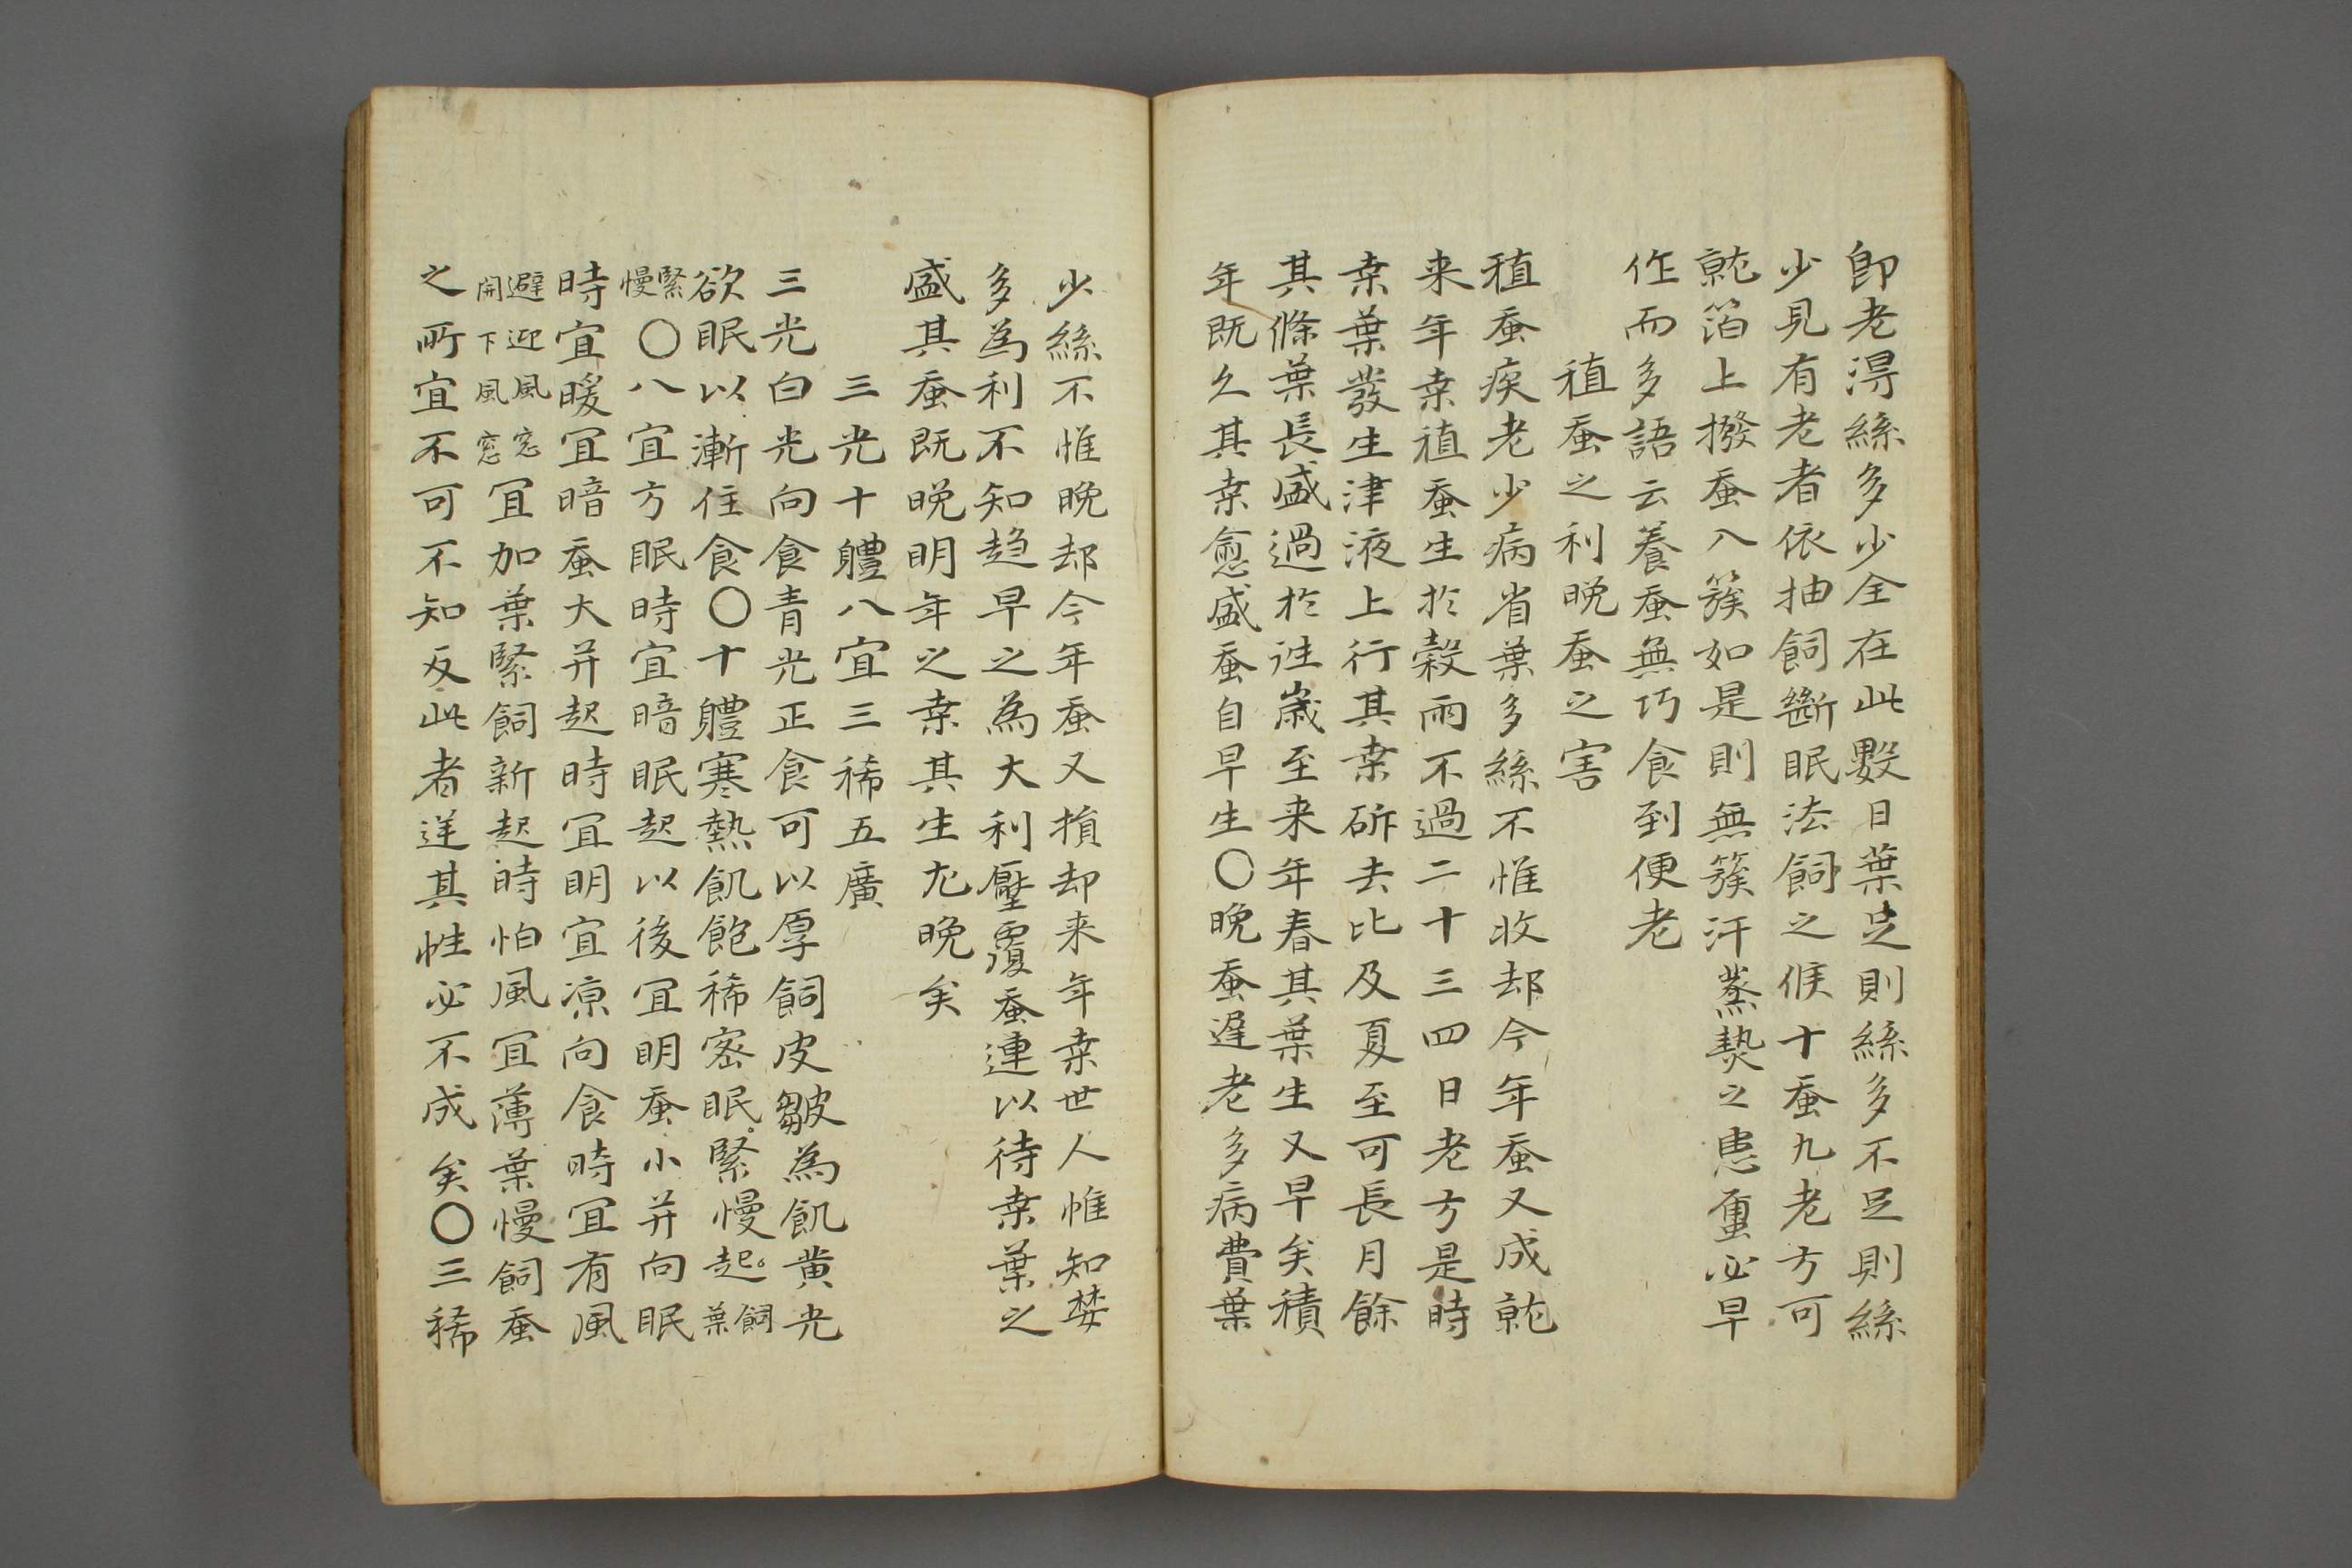 即老淂絲多少全在此數日葉足則絲多不足則絲
少見有老者依抽飼斷眠法飼之候十蚕九老方可
就箔上撥蚕入簇如是則無簇汗蒸𤍠之患蠒必早
作而多語云養蚕無巧食到便老
稙蚕之利晩蚕之害
稙蚕疾老少病省葉多絲不惟收却今年蚕又成就
来年桒稙蚕生於穀雨不過二十三四日老方是時
桒葉發生津液上行其桒斫去比及夏至可長月餘
其條葉長盛過於徃歳至来年春其葉生又早矣積
年既久其桒愈盛蚕自早生〇晩蚕遅老多病費葉
少絲不惟晩却今年蚕又損却来年桒世人惟知婪
多為利不知趋早之為大利壓覆蚕連以待桒葉之
盛其蚕既晩明年之桒其生尢晩矣
三光十軆八宜三稀五廣
三光白光向食青光正食可以厚飼皮皺為飢黄光
欲眠以漸住食〇十軆寒熱飢飽稀宻眠起緊慢飼葉
緊慢〇八宜方眠時宜暗眠起以後宜明蚕小并向眠
時宜暖宜暗蚕大并起時宜明宜凉向食時宜有風
避迎風窓開下風窓宜加葉緊飼新起時怕風宜薄葉慢飼蚕
之所宜不可不知反此者逆其性必不成矣〇三稀